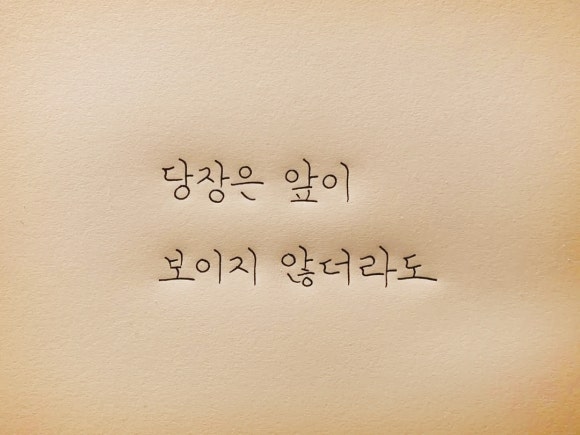 당장은 앞이
보이지 않더라도